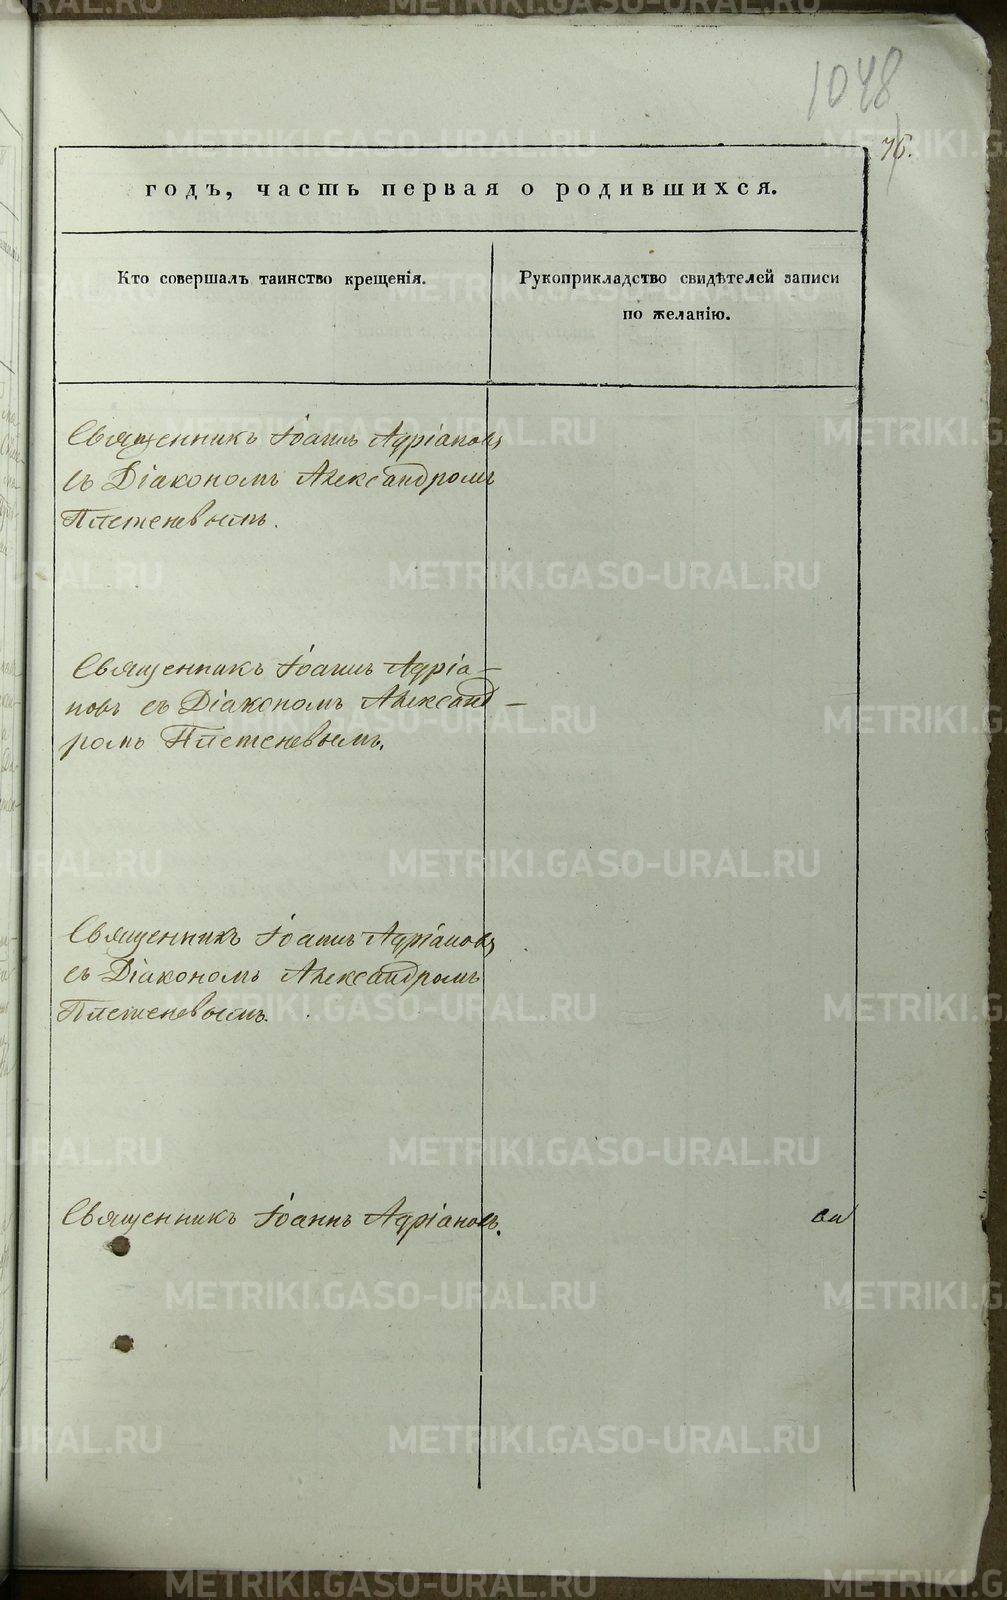 1048
76.
годъ, часть первая о родившихся.
Кто совершалъ таинство крещенія.
Рукоприкладство свидѣтелей записи
по желанію.
Священникъ Іоаннъ Адріановъ
съ Діакономъ Александромъ
Плетеневымъ.
Священникъ Іоаннъ Адріа-
новъ съ Діакономъ Александ-
ромъ Плетеневымъ.
Священникъ Іоаннъ Адріановъ
съ Діакономъ Александромъ
Плетеневымъ.
Священникъ Іоаннъ Адріановъ.
METRIKI.GASO-URAL.RU